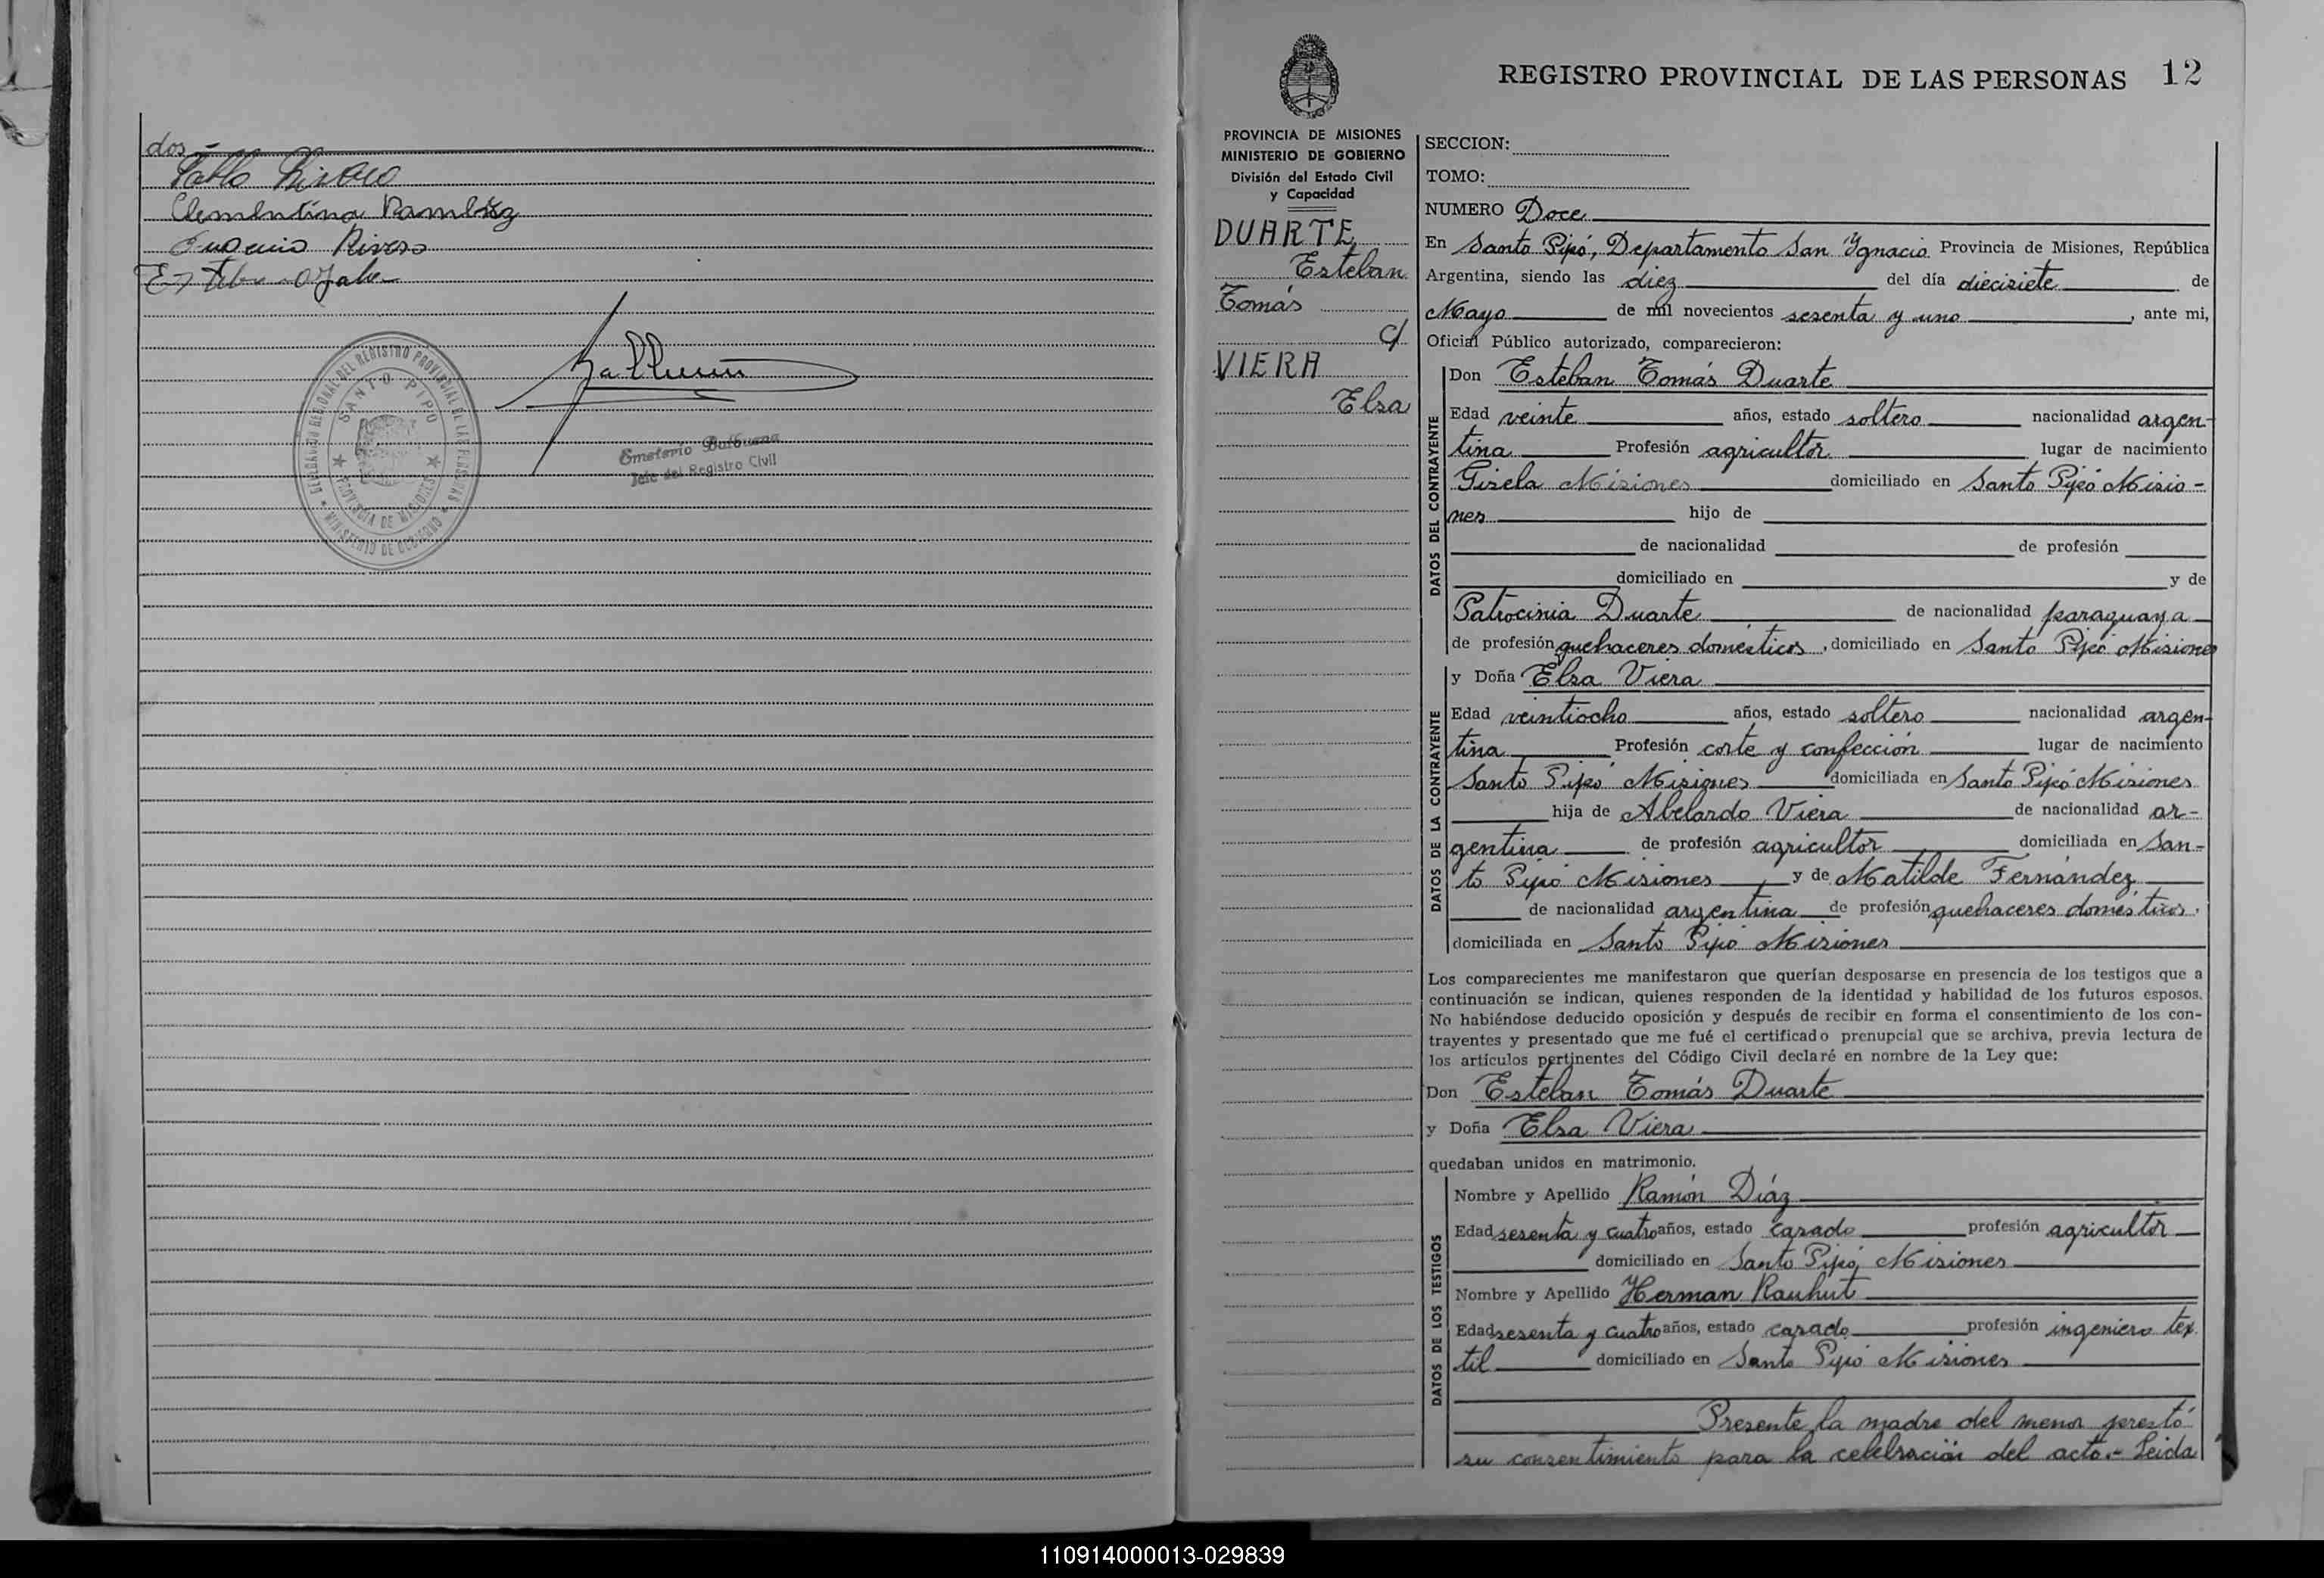 dos.-
Pablo
Clementina Ramírez
Eugenio Rivero
DELEGACIÓN REGIONAL DEL REGISTRO PROVINCIAL DE LAS PERSONAS
SANTO PIPO
PROVINCIA DE MISIONES
MINISTERIO DE GOBIERNO
Emeterio Balbuena
Jefe del Registro Civil
REGISTRO PROVINCIAL DE LAS PERSONAS 12
PROVINCIA DE MISIONES
MINISTERIO DE GOBIERNO
División del Estado Civil
y Capacidad
DUARTE
Esteban
Tomás
c/
VIERA
Elsa
SECCION:
TOMO:
NUMERO Doce
En Santo Pipó, Departamento San Ygnacio Provincia de Misiones, República
Argentina, siendo las diez del día diecisiete de
Mayo de mil novecientos sesenta y uno, ante mi,
Oficial Público autorizado, comparecieron:
DATOS DEL CONTRAYENTE
Don Esteban Tomás Duarte
Edad veinte años, estado soltero nacionalidad argen-
tina Profesión agricultor lugar de nacimiento
Gisela Misiones domiciliado en Santo Pipó Misio-
nes hijo de
de nacionalidad de profesión
domiciliado en y de
Patrocinia Duarte de nacionalidad paraguaya
de profesión quehaceres domésticos, domiciliado en Santo Pipó Misiones
DATOS DE LA CONTRAYENTE
y Doña Elsa Viera
Edad veintiocho años, estado soltero nacionalidad argen-
tina Profesión corte y confección lugar de nacimiento
Santo Pipó Misiones domiciliada en Santo Pipó Misiones
hija de Abelardo Viera de nacionalidad ar-
gentina de profesión agricultor domiciliada en San-
to Pipó Misiones y de Matilde Fernández
de nacionalidad argentina de profesión quehaceres domésticos.
domiciliada en Santo Pipó Misiones
Los comparecientes me manifestaron que querían desposarse en presencia de los testigos que a
continuación se indican, quienes responden de la identidad y habilidad de los futuros esposos.
No habiéndose deducido oposición y después de recibir en forma el consentimiento de los con-
trayentes y presentado que me fué el certificado prenupcial que se archiva, previa lectura de
los artículos pertinentes del Código Civil declaré en nombre de la Ley que:
Don Esteban Tomás Duarte
y Doña Elsa Viera
quedaban unidos en matrimonio.
DATOS DE LOS TESTIGOS
Nombre y Apellido Ramón Díaz
Edad sesenta y cuatro años, estado casado profesión agricultor
domiciliado en Santo Pipó, Misiones
Nombre y Apellido Herman Rauhut
Edad sesenta y cuatro años, estado casado profesión ingeniero tex
til domiciliado en Santo Pipó Misiones
Presente la madre del menor prestó
su consentimiento para la celebración del acto.- Leida
110914000013-029839